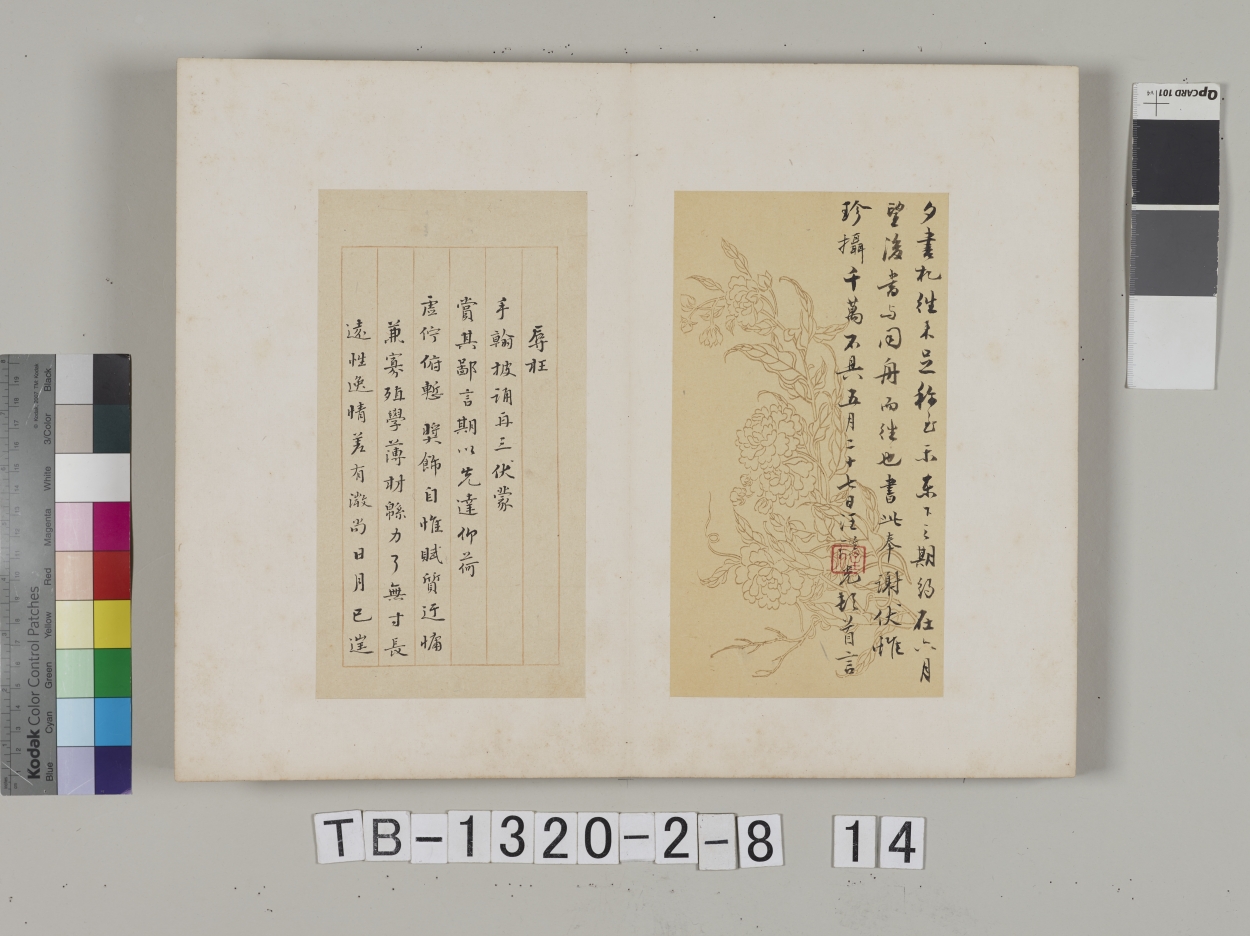 夕書札往未足称也示東下之期約在六月
望後當与同舟而往也書此奉謝伏惟
珍攝千萬不具五月二十七日汪憲光頓首言
辱枉
手翰披誦再三伏蒙
賞其鄙言期以先達仰荷
虛佇俯慙奬飾自惟賦質迂慵
兼寡殖學薄材緜力了無寸長
遠性逸情差有微尚日月已遙
TB-1320-2-8 14
QpCARD 101
Kodak Color Control Patches
Blue Cyan Green Yellow Red Magenta White 3/Color Black